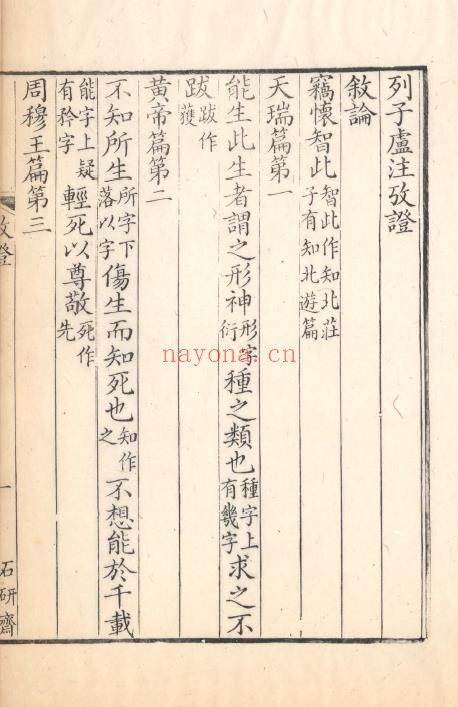 列子盧注攷證
敘論
竊懷智此智此作知北莊子有知北遊篇
天瑞篇第一
能生此生者謂之形神形字衍種之類也種字上有幾字求之不
跋跋作獲
黃帝篇第二
不知所生所字下落以字傷生而知死也知作之不想能於千載
能字上疑有矜字輕死以尊敬死作先
周穆王篇第三
攷證 一 石研齋
nayona.cn